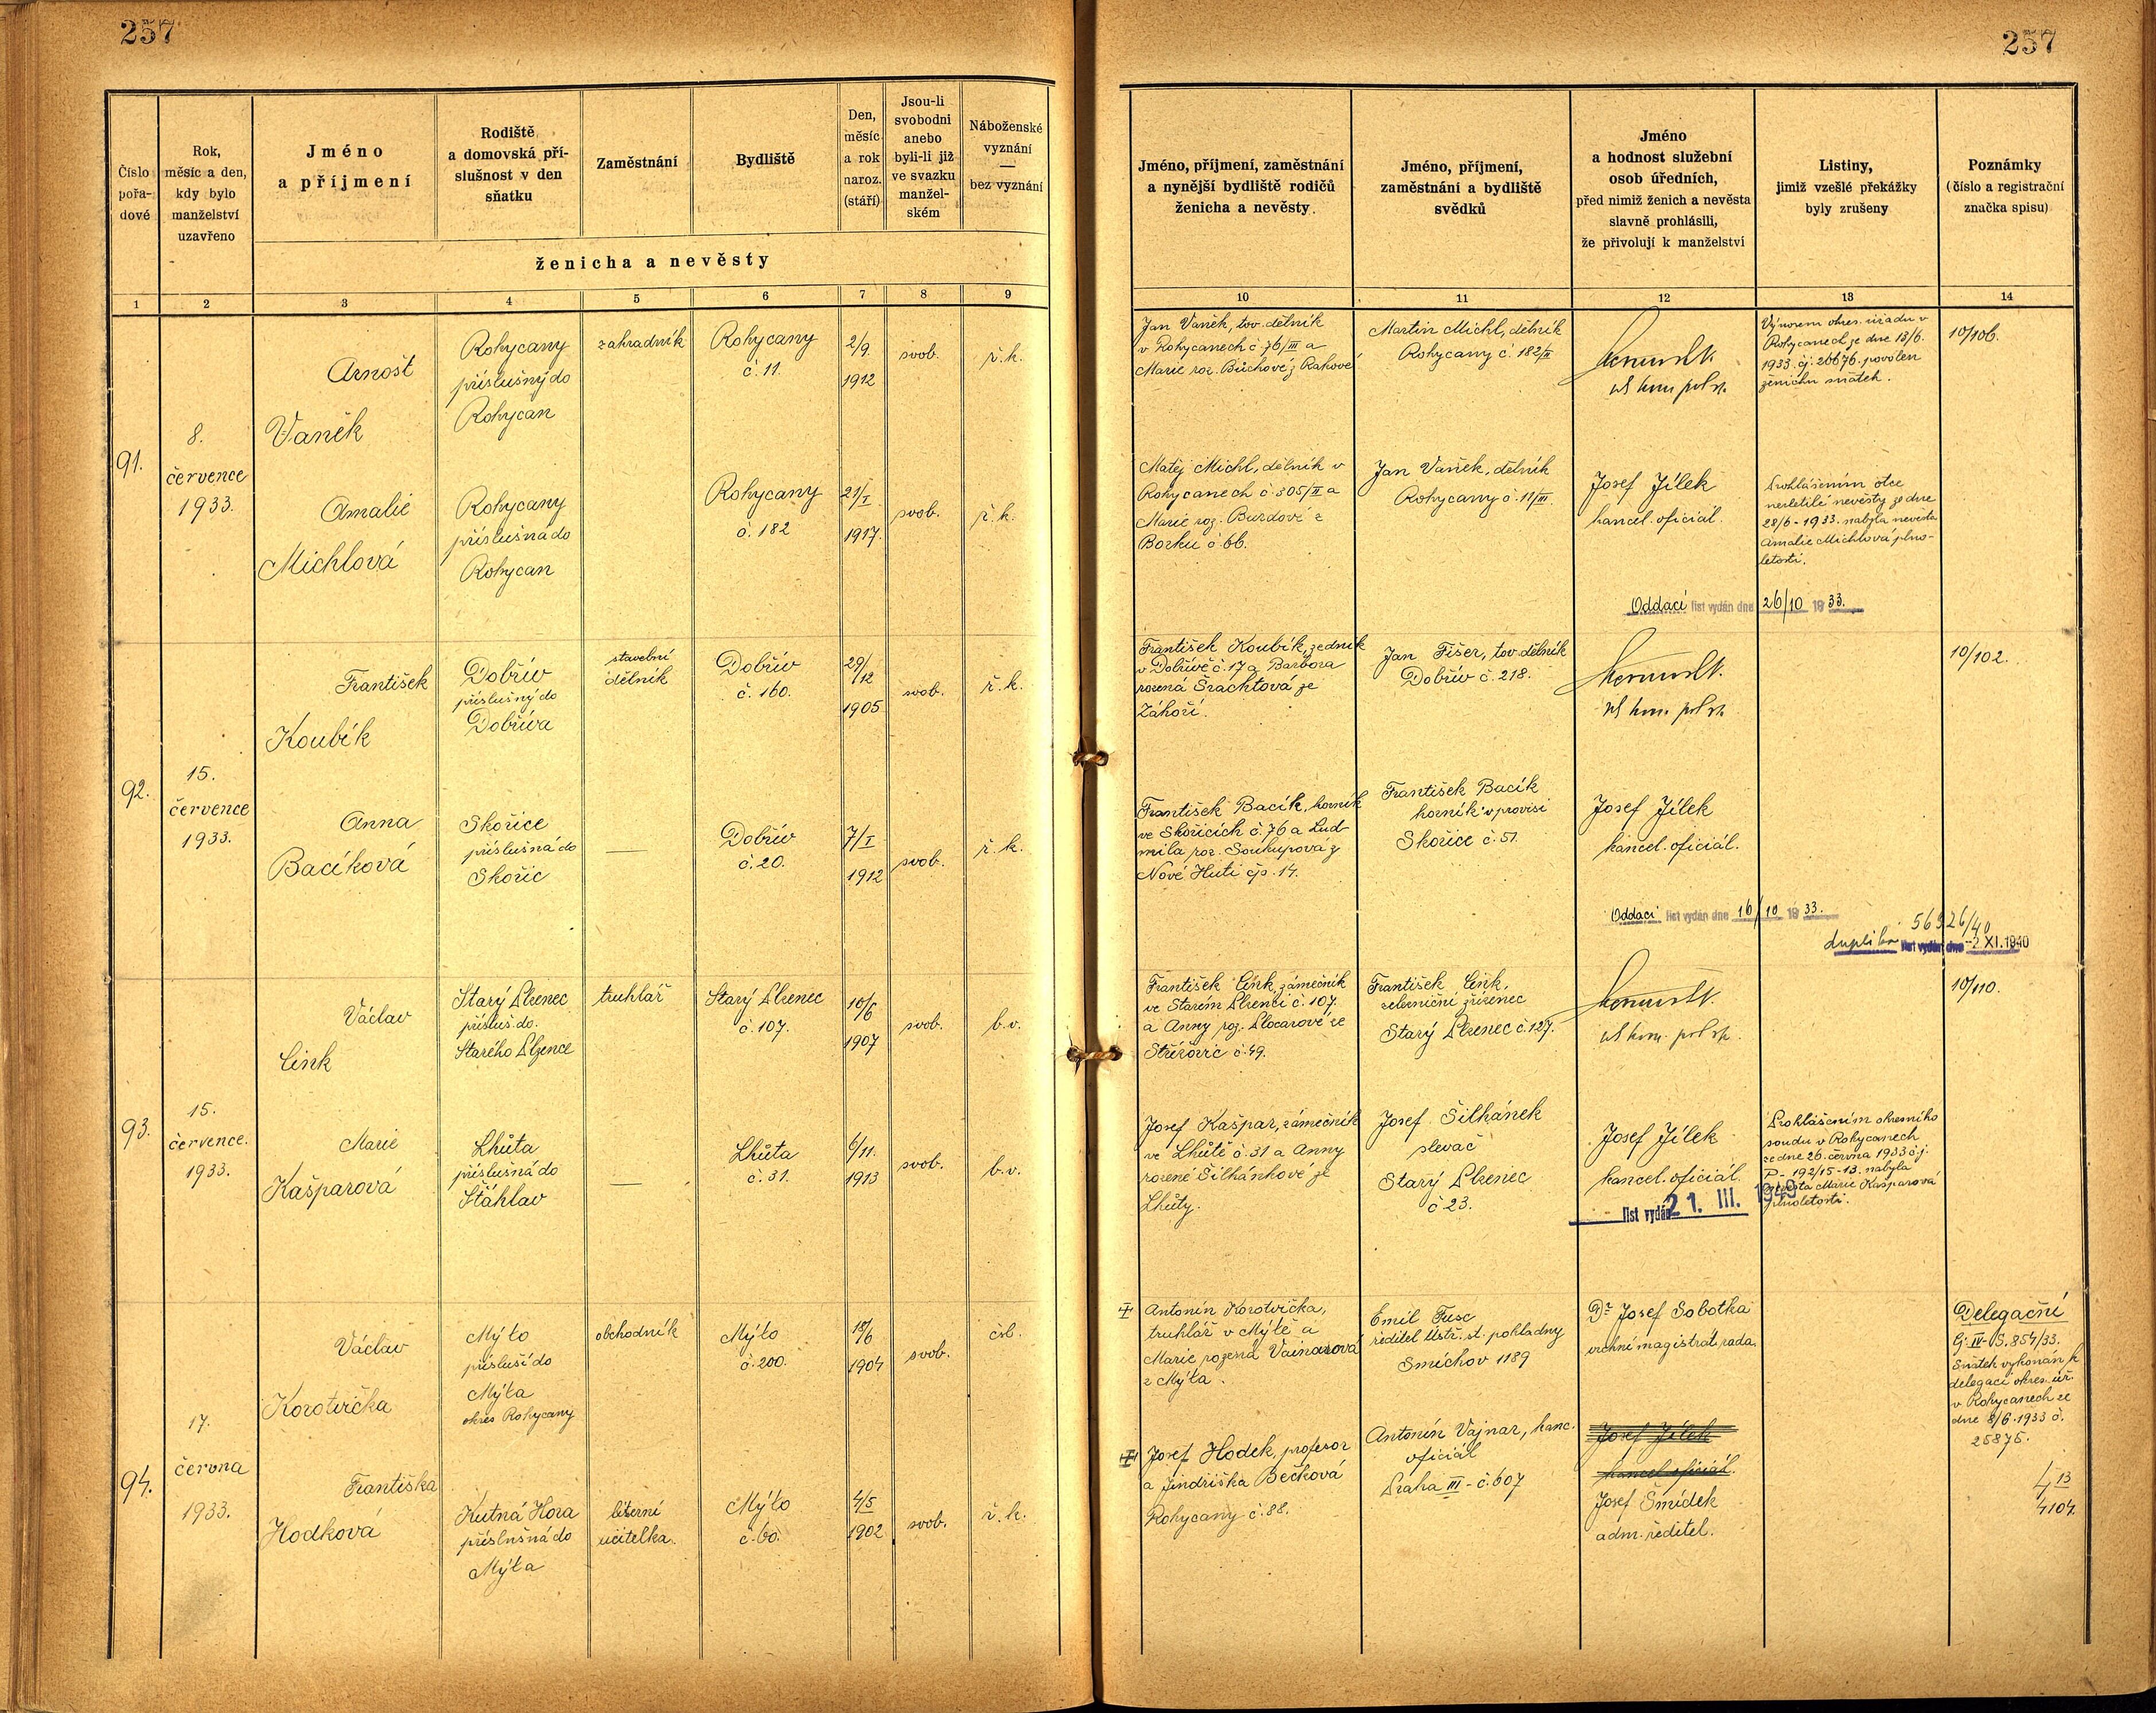 257
257
Číslo pořa-dové
Rok, měsíc a den, kdy bylo manželství uzavřeno
Jméno a příjmení
Rodiště a domovská pří-slušnost v den sňatku
Zaměstnání
Bydliště
Den, měsíc a rok naroz. (stáří)
Jsou-li svobodni anebo byli-li již ve svazku manžel-ském
Náboženské vyznání — bez vyznání
ženicha a nevěsty
Jméno, příjmení, zaměstnání a nynější bydliště rodičů ženicha a nevěsty.
Jméno, příjmení, zaměstnání a bydliště svědků
Jméno a hodnost služební osob úředních, před nimiž ženich a nevěsta slavně prohlásili, že přivolují k manželství
Listiny, jimiž vzešlé překážky byly zrušeny
Poznámky (číslo a registrační značka spisu)
1 2 3 4 5 6 7 8 9 10 11 12 13 14
91.
8.
července
1933.
Arnošt
Vaněk
Rokycany
příslušný do
Rokycan
zahradník
Rokycany
č. 11.
2/9.
1912
svob.
ř.k.
Amalie
Michlová
Rokycany
příslušná do
Rokycan
Rokycany
č. 182
21/I
1917.
svob.
ř.k.
Jan Vaněk, tov. dělník
v Rokycanech č. 76/III a
Marie roz. Bůchové z Rakové
Martin Michl, dělník
Rokycany č. 182/II
Výnosem okres. úřadu v
Rokycanech ze dne 13/6.
1933. čj. 26676. povolen
ženichu sňatek.
10/106.
Matěj Michl, dělník v
Rokycanech č. 305/II a
Marie roz. Burdové z
Borku č. 66.
Jan Vaněk, dělník
Rokycany č. 11/III.
Josef Jílek
kancel. oficiál.
Prohlášením otce
nezletilé nevěsty ze dne
28/6 - 1933. nabyla nevěsta
Amalie Michlová plno-
letosti.
Oddací list vydán dne 26/10 1933.
92.
15.
července
1933.
František
Koubík
Dobřív
příslušný do
Dobříva
stavební
dělník
Dobřív
č. 160.
29/12
1905
svob.
ř.k.
Anna
Bacíková
Skořice
příslušná do
Skořic
Dobřív
č. 20.
7/I
1912
svob.
ř.k.
František Koubík, zedník
v Dobřívě č. 17 a Barbora
rozená Šrachtová ze
Záhoří.
Jan Fišer, tov. dělník
Dobřív č. 218.
10/102.
František Bacík, horník
ve Skořicích č. 76 a Lud-
mila roz. Soukupová z
Nové Huti čp. 14.
František Bacík
horník v provisi
Skořice č. 51.
Josef Jílek
kancel. oficiál.
Oddací list vydán dne 16/10 1933.
56926/40
duplikát list vydán dne -2 XI. 1940
93.
15.
července.
1933.
Václav
Cink
Starý Plzenec
přísluš. do.
Starého Plzence
truhlář
Starý Plzenec
č. 107.
10/6
1907
svob.
b.v.
Marie
Kašparová
Lhůta
příslušná do
Štáhlav
Lhůta
č. 31.
6/11.
1913
svob.
b.v.
František Cink, zámečník
ve Starém Plzenci č. 107.
a Anny roz. Plocarové ze
Střížovic č. 49.
František Cink,
železniční zřízenec
Starý Plzenec č. 127.
10/110.
Josef Kašpar, zámečník
ve Lhůtě č. 31 a Anny
rozené Šilhánkové ze
Lhůty.
Josef Šilhánek
slevač
Starý Plzenec
č 23.
Josef Jílek
kancel. oficiál.
Prohlášením okresního
soudu v Rokycanech
ze dne 26. června 1933 č.j.
P - 192/15 - 13. nabyla
nevěsta Marie Kašparová
plnoletosti.
list vydán 21. III. 1949
94.
17.
června
1933.
Václav
Korotvička
Mýto
přísluší do
Mýta
okres Rokycany
obchodník
Mýto
č. 200.
18/6
1904
svob.
čsl.
Františka
Hodková
Kutná Hora
příslušná do
Mýta
literní
učitelka.
Mýto
č. 60.
4/5
1902
svob.
ř.k.
Antonín Korotvička,
truhlář v Mýtě a
Marie rozená Vainarová
z Mýta.
Emil Fusc
ředitel Ústř. st. pokladny
Smíchov 1189
Dr Josef Sobotka
vrchní magistrát. rada.
Delegační
Čj. IV - S. 854/33.
Sňatek vykonán k
delegaci okres. úř.
v Rokycanech ze
dne 8/6. 1933 č.
25875.
Josef Hodek, profesor
a Jindřiška Bečková
Rokycany č. 88.
Antonín Vajnar, kanc.
oficiál
Praha III - č. 607
Josef Jílek
kancel. oficiál.
Josef Šmídek
adm. ředitel.
4104.